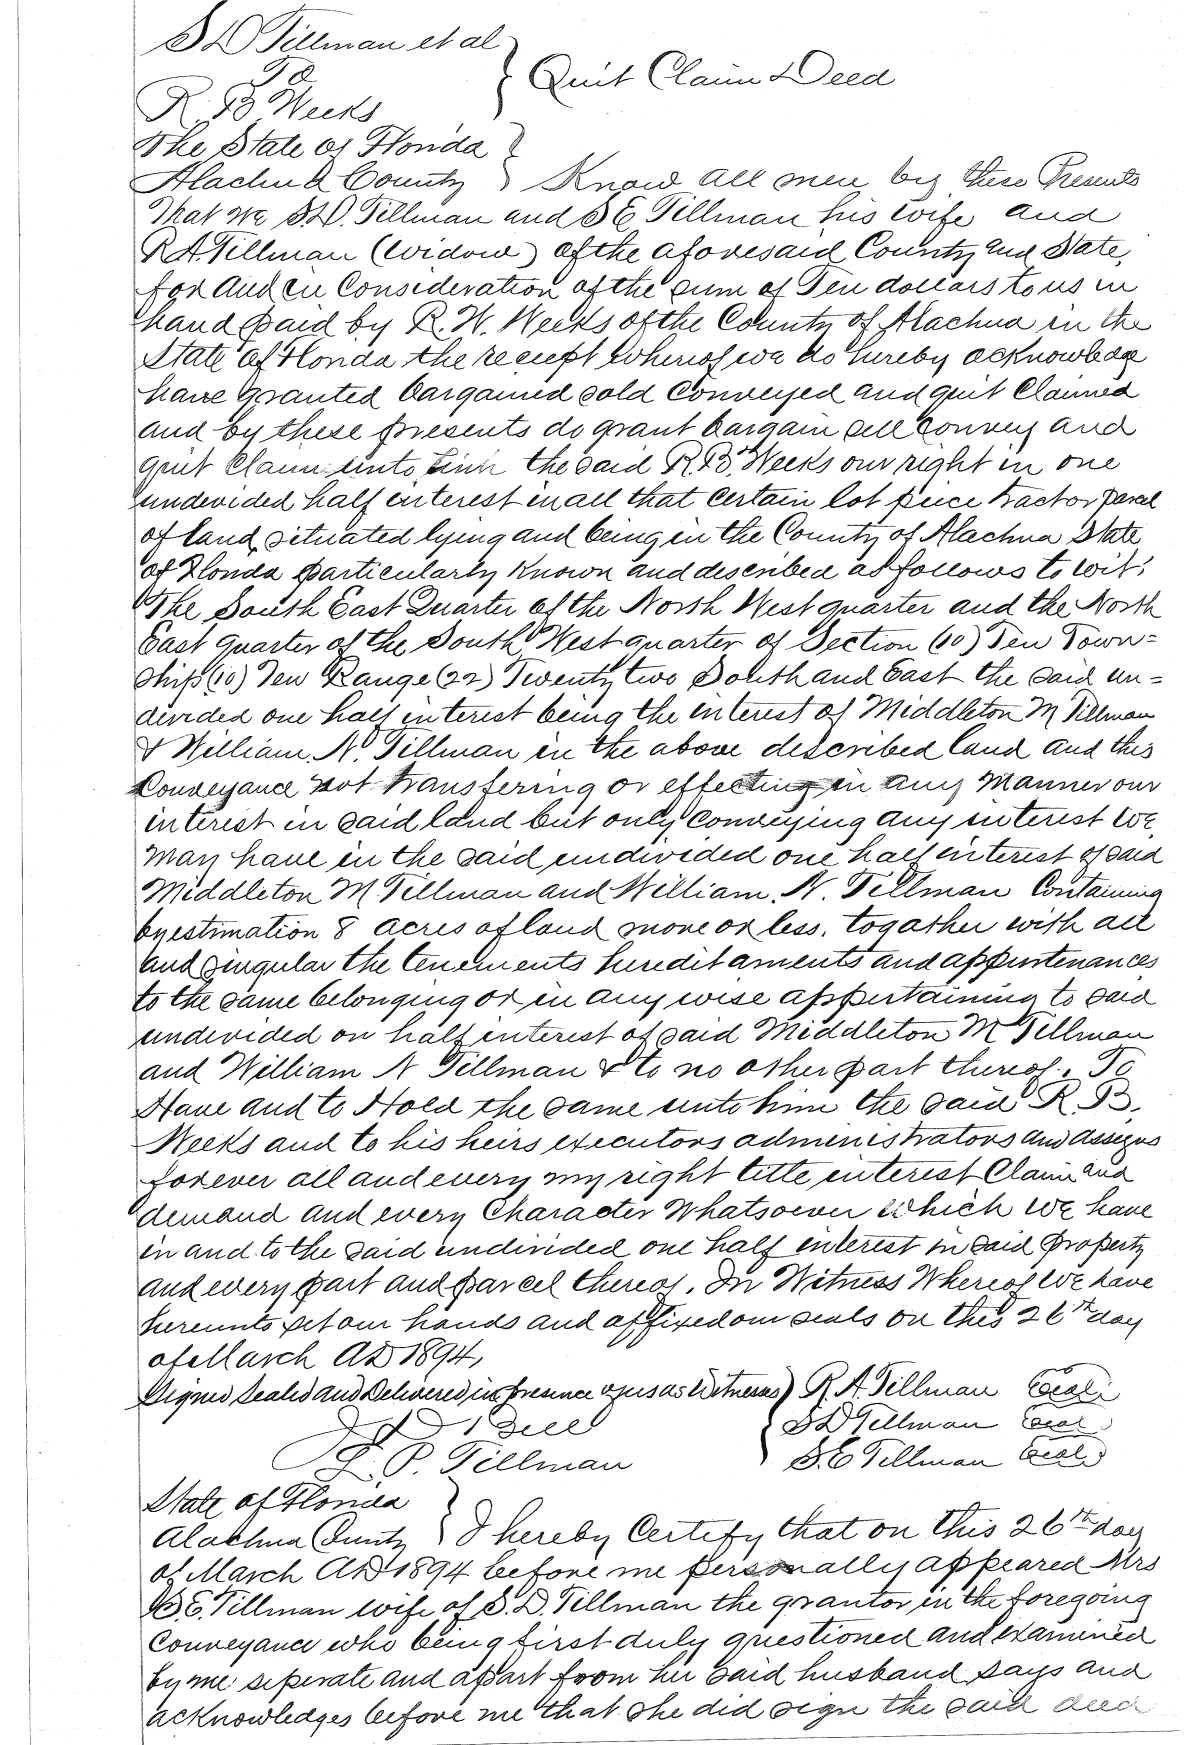 S D Tillman et al
To } Quit Claim Deed
R. B. Weeks
The State of Florida }
Alachua County } Know all men by these Presents
That we S.D. Tillman and S E Tillman his wife and
R A. Tillman (widow) of the aforesaid County and State,
for and in Consideration of the sum of Ten dollars to us in
hand paid by R. W. Weeks of the County of Alachua in the
State of Florida the receipt whereof we do hereby acknowledge
have granted bargained sold Conveyed and quit Claimed
and by these presents do grant bargain sell convey and
quit Claim unto the said R. B. Weeks our right in one
undivided half interest in all that certain lot piece tract or parcel
of land, situated lying and being in the County of Alachua State
of Florida particularly known and described as follows to wit:
The South East Quarter of the North West quarter and the North
East quarter of the South West quarter of Section (10) Ten Town=
ship (10) Ten Range (22) Twenty two South and East the said un=
divided one half interest being the interest of Middleton M Tillman
& William. N. Tillman in the above described land and this
Conveyance not transfering or effecting in any Manner our
interest in said land but only conveying any interest we
may have in the said undivided one half interest of said
Middleton M Tillman and William. N. Tillman Containing
by estimation 8 acres of land more or less. togather with all
and singular the tenements hereditaments and appurtenances
to the same belonging or in any wise appertaining to said
undivided on half interest of said Middleton M Tillman
and William N Tillman & to no other part thereof. To
Have and to Hold the same unto him the said R. B.
Weeks and to his heirs executors administrators and assigns
forever all and every my right title interest Claim and
demand and every Character Whatsoever which we have
in and to the said undivided one half interest in said property
and every part and parcel thereof. In Witness Whereof we have
hereunto set our hands and affixed our seals on this 26th day
of March AD 1894,
Signed Sealed and Delivered in presence of us as Witnesses } R. A. Tillman (Seal)
Bell { S D Tillman (Seal)
P. Tillman S. E Tillman (Seal)
State of Florida }
Alachua County } I hereby Certify that on this 26th day
of March AD 1894 before me personally appeared Mrs
S. E. Tillman wife of S. D. Tillman the grantor in the foregoing
Conveyance who being first duly questioned and examined
by me seperate and apart from her said husband says and
acknowledges before me that she did sign the said deed